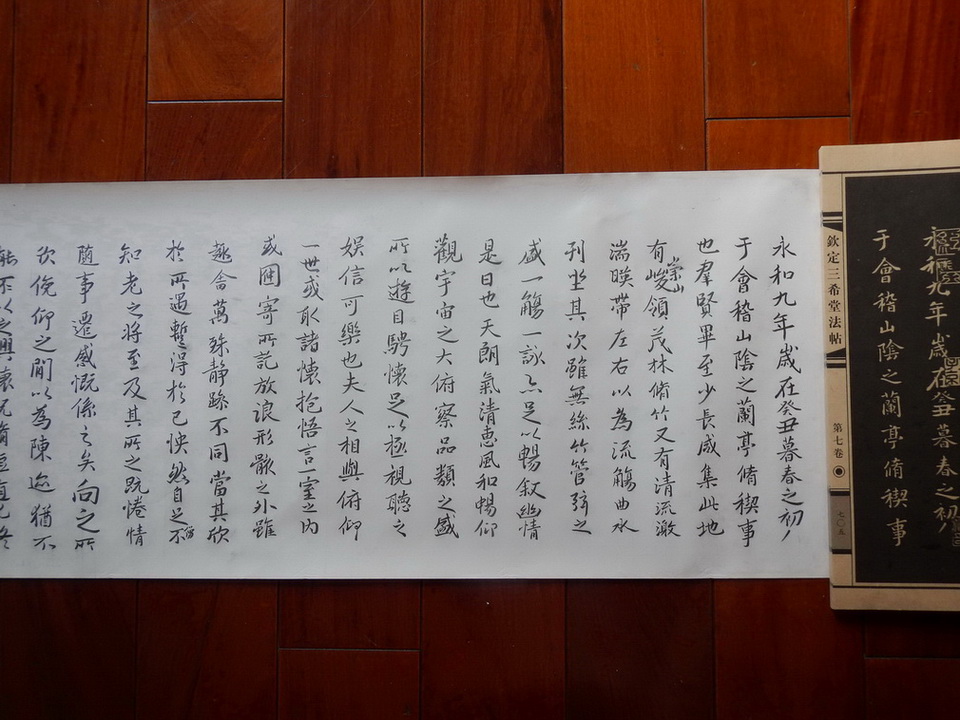 永和九年歲在癸丑暮春之初
于會稽山陰之蘭亭脩稧事
欽定三希堂法帖
第七卷
七〇五
永和九年歲在癸丑暮春之初
于會稽山陰之蘭亭脩稧事
也羣賢畢至少長咸集此地
有崇山峻領茂林脩竹又有清流激
湍暎帶左右以為流觴曲水
列坐其次雖無絲竹管弦之
盛一觴一詠亦足以暢叙幽情
是日也天朗氣清惠風和暢仰
觀宇宙之大俯察品類之盛
所以遊目騁懷足以極視聽之
娱信可樂也夫人之相與俯仰
一世或取諸懷抱悟言一室之内
或因寄所託放浪形骸之外雖
趣舍萬殊静躁不同當其欣
於所遇蹔得於己怏然自足不
知老之將至及其所之既惓情
隨事遷感慨係之矣向之所
欣俛仰之閒以為陳迹猶不
能不以之興懷況脩短